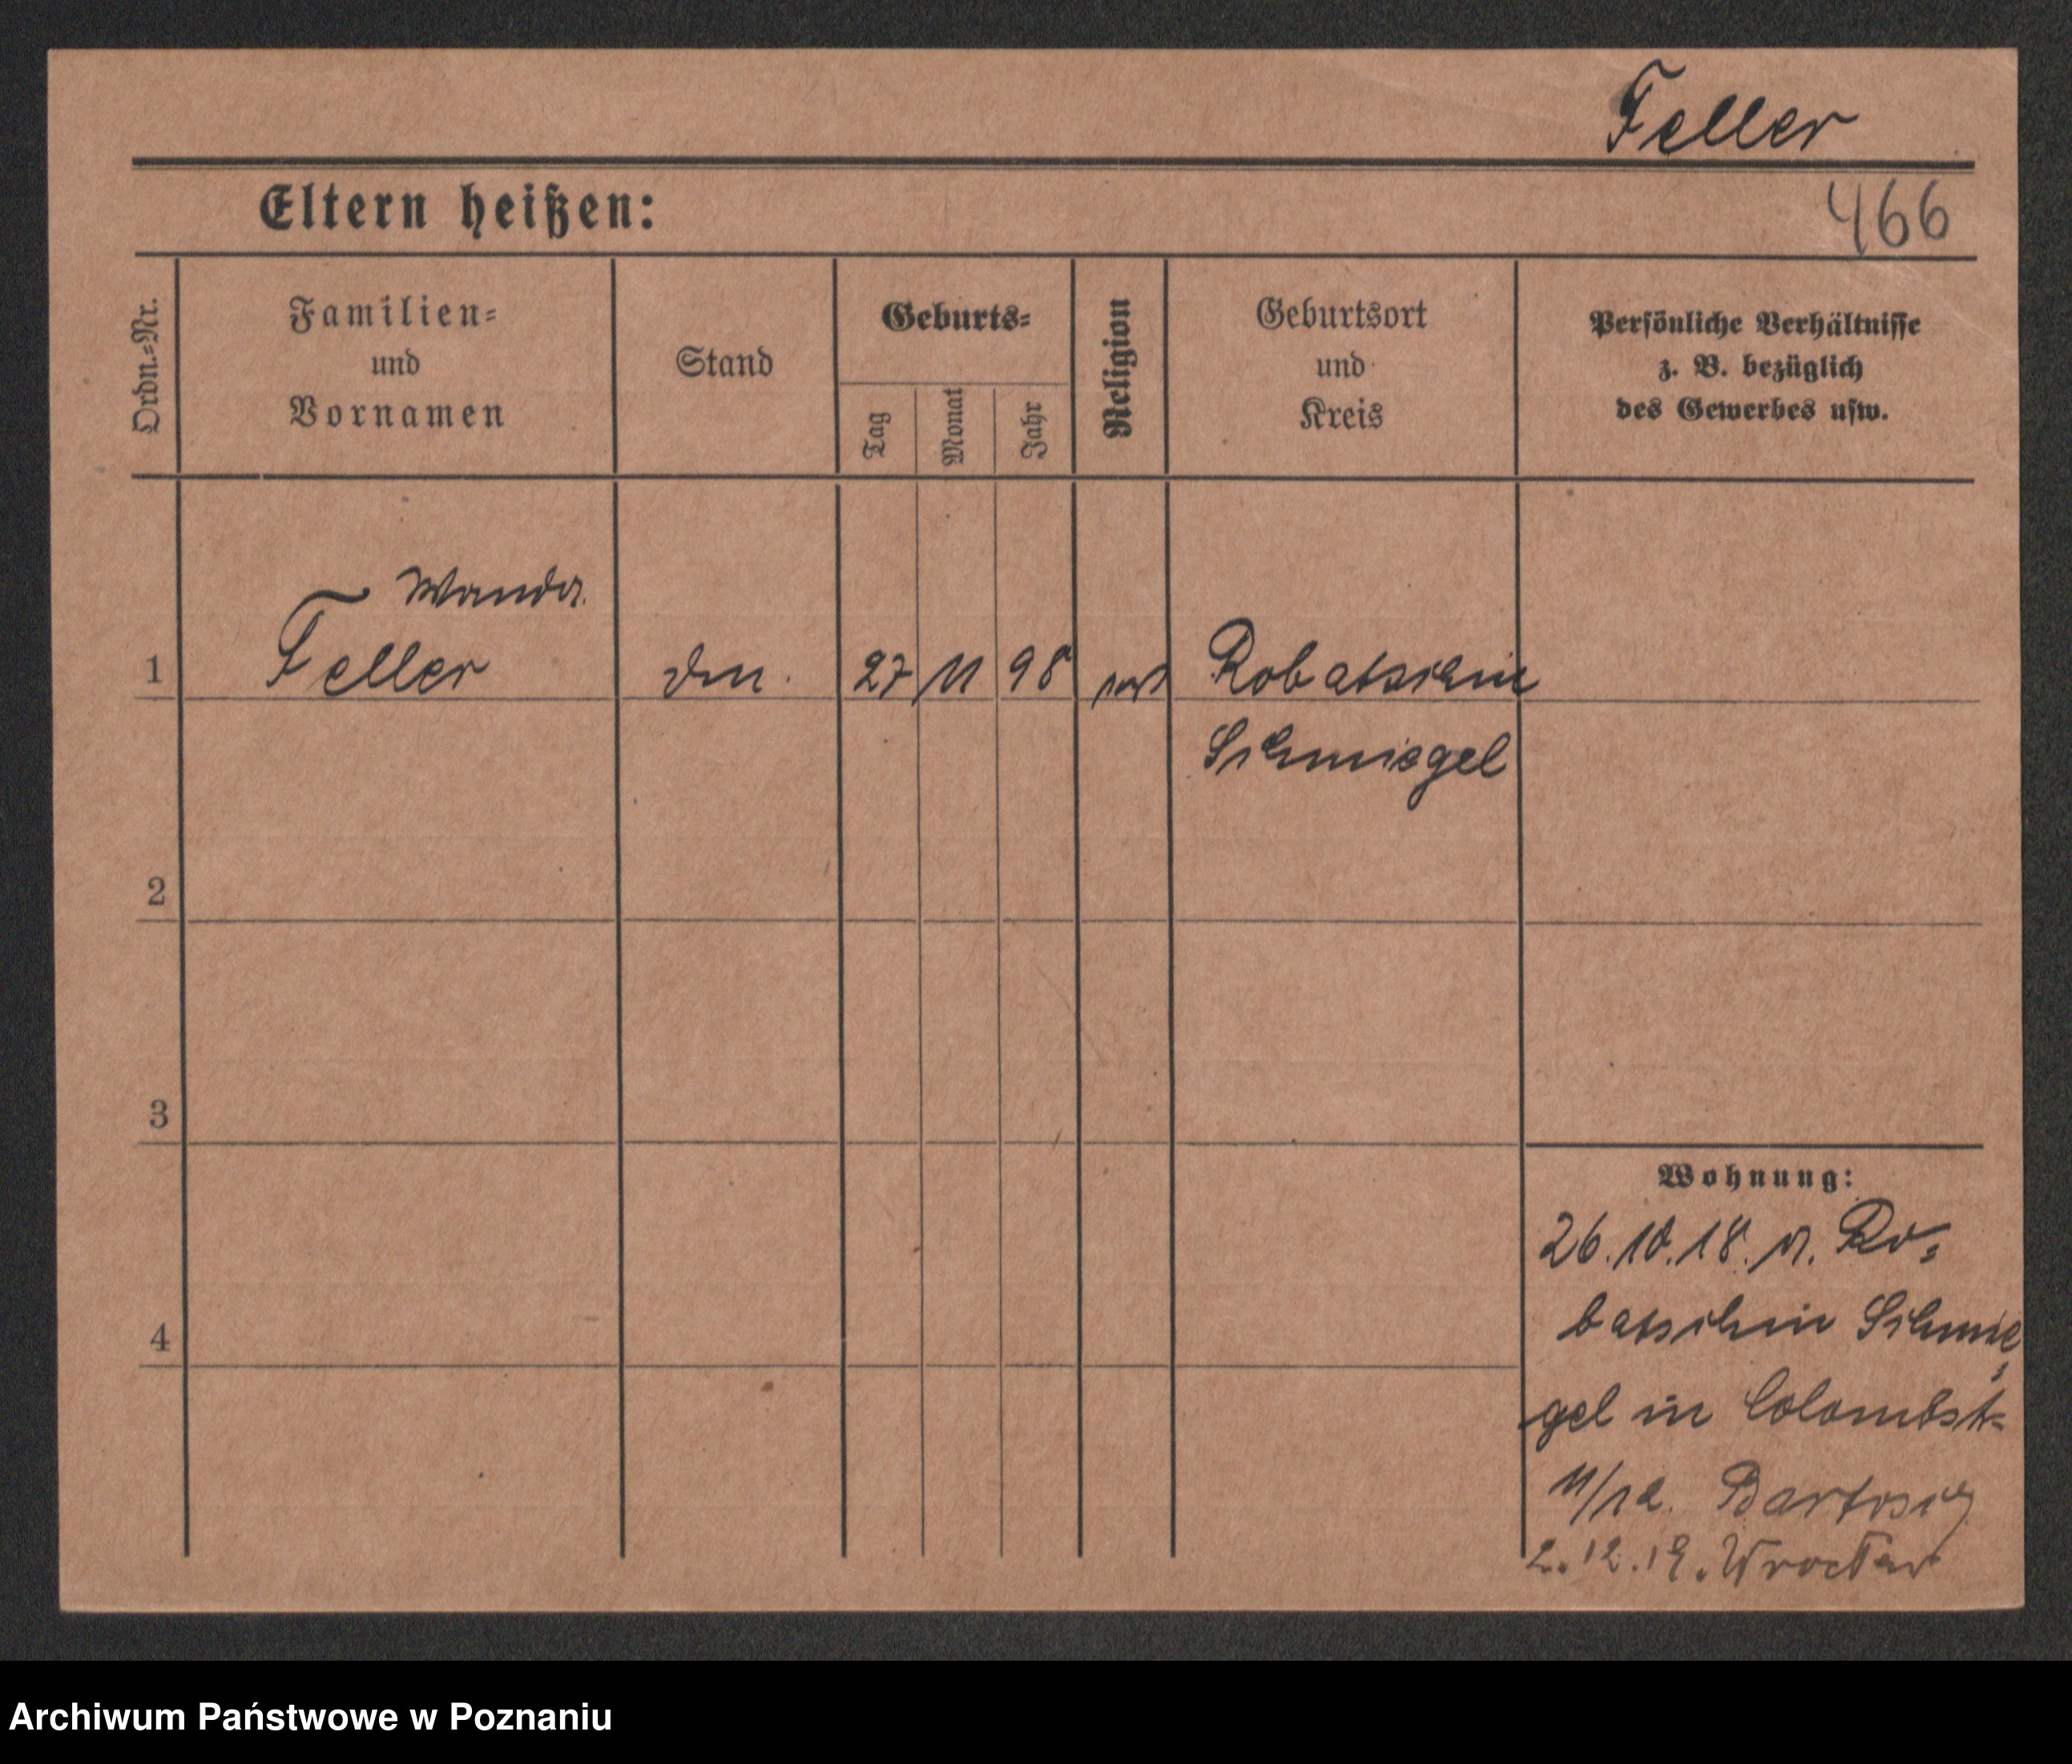 Feller
Eltern heißen:
466
Ordn.=Nr.
Familien=
und
Vornamen
Stand
Geburts=
Tag
Monat
Jahr
Religion
Geburtsort
und
Kreis
Persönliche Verhältnisse
z. B. bezüglich
des Gewerbes usw.
Wanda
1 Feller 27 11 98 Robatschin
Schmiegel
2
3
4
Wohnung:
26.10.18. v. Ro=
batschin Schmie=
gel in Colombst=
11/12. Bartosig
2.12.19. Wrocław
Archiwum Państwowe w Poznaniu